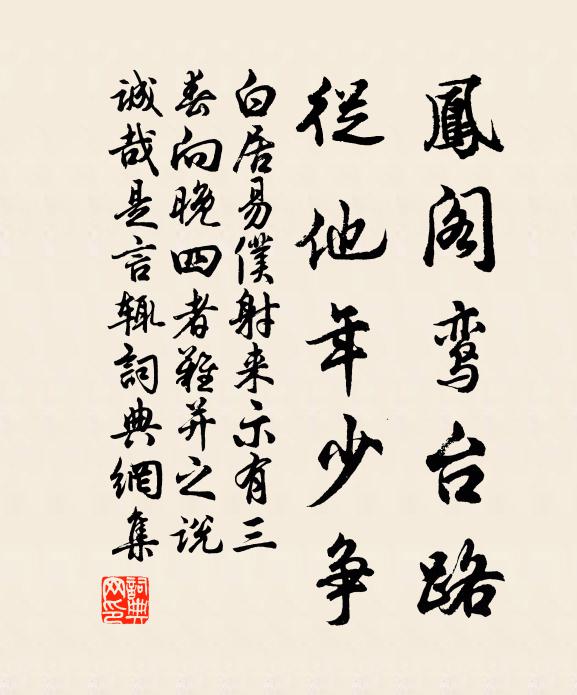 鳳阁鸾台路
從他年少争
白居易僕射来示有三
春向晚四者難并之说
诚哉是言辄詞典網集
詞典网印